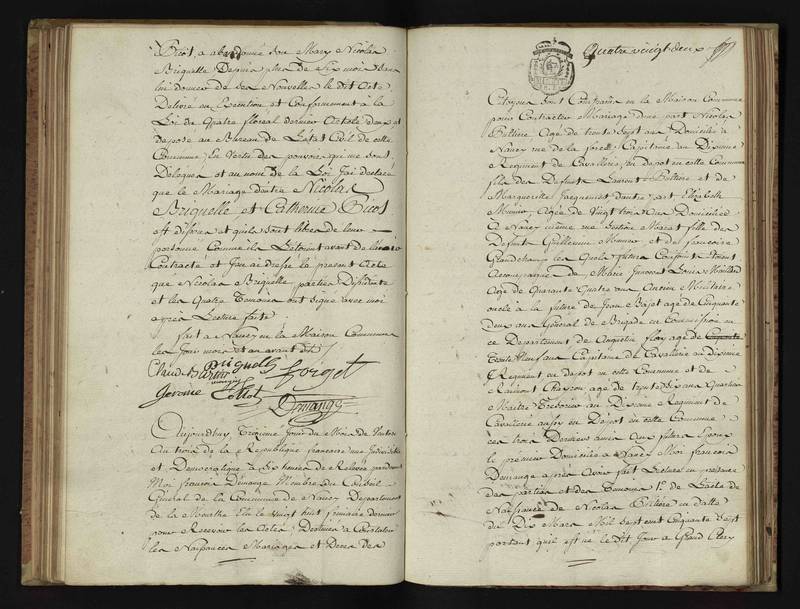 Picot, a abandonné son Mary Nicolas
Briquelle Depuis plus de Six mois sans
lui donner de ses Nouvelles le dit acte
Délivré en Execution et Conformement à la
Loi du quatre floreal dernier article deux et
déposé au Bureau de l'état Civil de cette
Commune, En Vertu des pouvoirs qui me sont
Délegués et au nom de la Loi J'ai declaré
que le Mariage d'entre Nicolas
Briquelle et Catherine Picot
est dissous et qu'ils sont libres de leur
personne Comme ils l'étoient avant de l'avoir
Contracté et J'en ai dressé le present Acte
que Nicolas Briquelle, parties
et les Quatre Temoins ont signé avec moi
après Lecture faite
fait a Nancy en la Maison Commune
les Jour mois et an avant dit
Briquelle Forget
Claude
Jerome Collot
Démange
Aujourdhuy Treizieme Jour du Mois de
An trois de la Republique françoise une Indivisible
et Democratique à Six heures de Relevée pardevant
Moi françois Démange Membre du Conseil
Général de la Commune de Nancy Departement
de la Meurthe Elu le Vingt huit frimaire dernier
pour Recevoir les Actes Destinés à Constater
les Naissances Mariages et Deces des
Quatre vingt deux
Citoyens sont Comparus en la Maison Commune
pour Contracter Mariage d'une part Nicolas
Bultiere Agé de trente Sept ans Domicilié à
Nancy rue de la force Capitaine au Dixieme
Regiment de Cavallerie, en depot en cette Commune
fils des Defunts Laurent Bultiere et de
Marguerite d'autre part Elizabeth
Munier Agée de Vingt trois ans Domiciliée
à Nancy même rue Section Marat fille des
Defunts Guillaume Munier et de françoise
Grandchamp les quels futurs Conjoints étoient
Accompagnés de Marie Louis Maillard
Agé de Quarante Quatre ans Ancien Militaire
oncle à la future de Jean agé de Cinquante
deux ans Général de Brigade en Commission en
ce Departement de Augustin agé de
Trente Neuf ans Capitaine de Cavallerie au dixieme
Regiment en depot en cette Commune et de
Chasson agé de trente dix ans Quartier
Maitre Trésorier au Dixieme Regiment de
Cavallerie aussy en Dépot en cette Commune
ces trois Derniers amis aux futurs Epoux
le premier Domicilié à Nancy Moi francois
Demange après avoir fait Lecture en presence
des parties et des Temoins 1.° de L'acte de
Naissance de Nicolas Bultiere en datte
du Dix Mars Mil Sept cent Cinquante Sept
portant qu'il est né le dit Jour a Grand